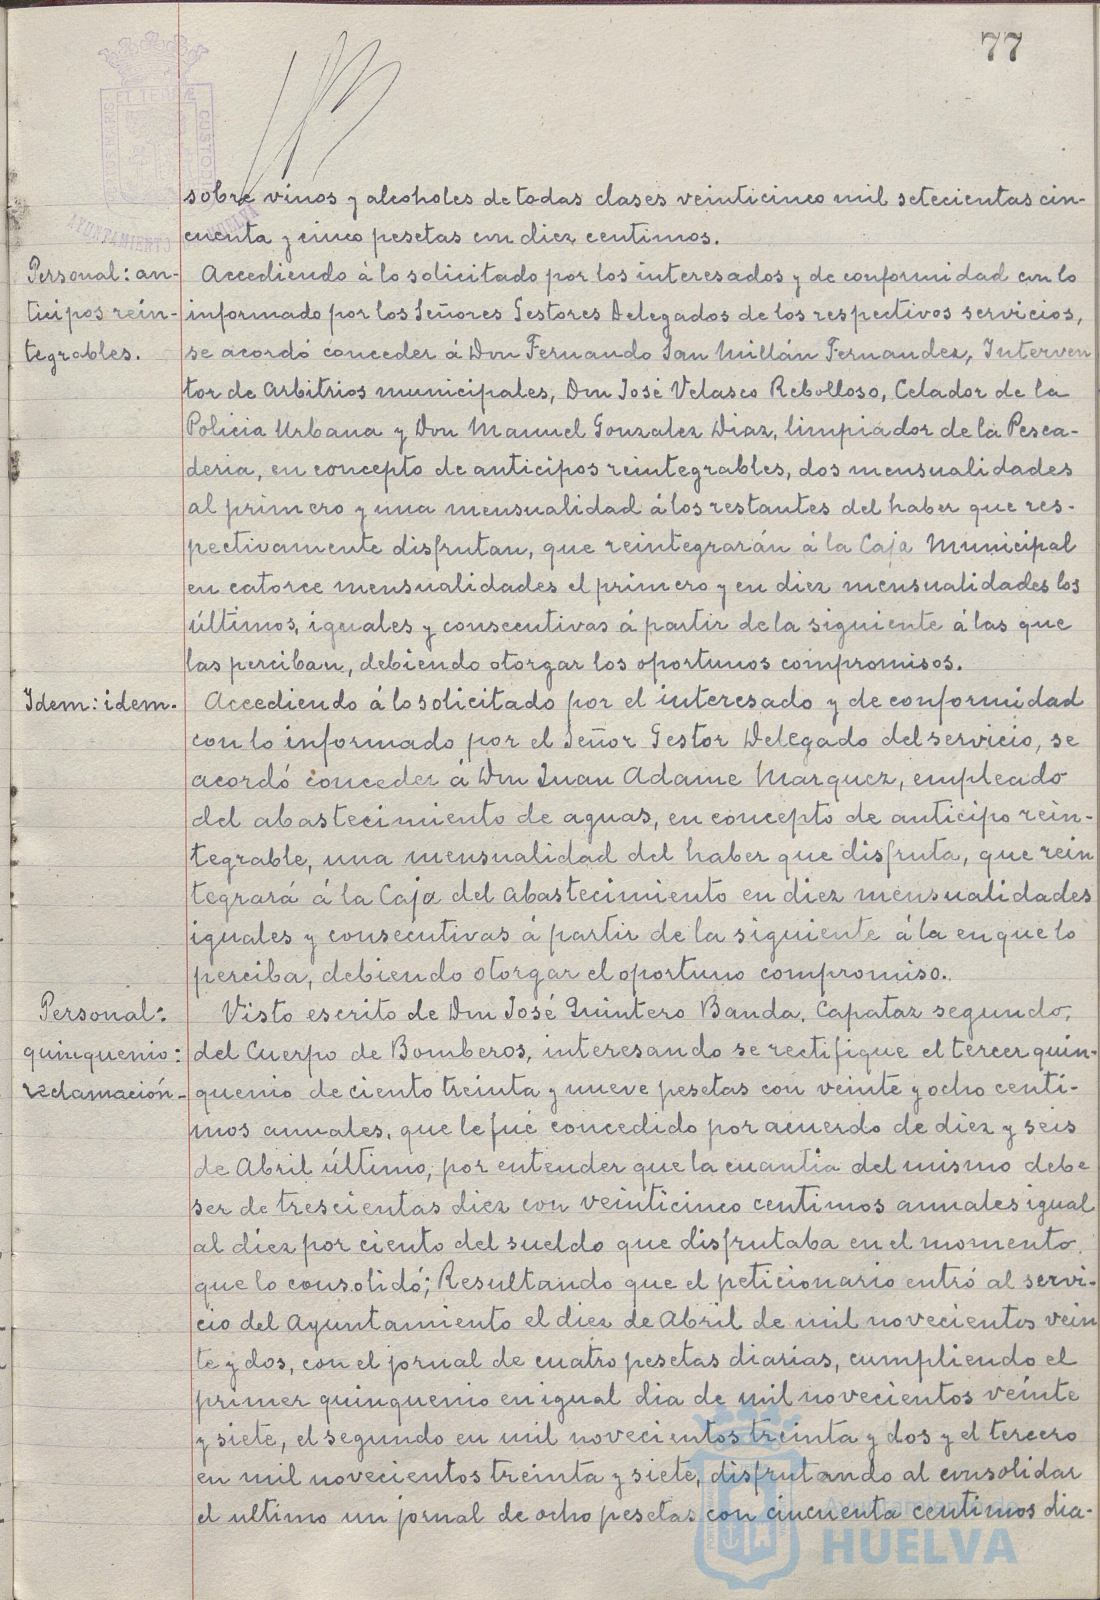 77
PORTUS MARIS ET TERRAE CUSTODIA
AYUNTAMIENTO DE HUELVA
sobre vinos y alcoholes de todas clases veinticinco mil setecientas cin-
cuenta y cinco pesetas con diez centimos.
Personal: an-
ticipos rein-
tegrables.
Accediendo á lo solicitado por los interesados y de conformidad con lo
informado por los Señores Gestores Delegados de los respectivos servicios,
se acordó conceder á Don Fernando San Millán Fernandez, Interven
tor de Arbitrios municipales, Don José Velasco Rebolloso, Celador de la
Policia Urbana y Don Manuel Gonzalez Diaz, limpiador de la Pesca-
deria, en concepto de anticipos reintegrables, dos mensualidades
al primero y una mensualidad á los restantes del haber que res-
pectivamente disfrutan, que reintegrarán á la Caja Municipal
en catorce mensualidades el primero y en diez mensualidades los
últimos, iguales y consecutivas á partir de la siguiente á las que
las perciban, debiendo otorgar los oportunos compromisos.
Idem: idem.
Accediendo á lo solicitado por el interesado y de conformidad
con lo informado por el Señor Gestor Delegado del servicio, se
acordó conceder á Don Juan Adame Marquez, empleado
del abastecimiento de aguas, en concepto de anticipo rein-
tegrable, una mensualidad del haber que disfruta, que rein
tegrará á la Caja del Abastecimiento en diez mensualidades
iguales y consecutivas á partir de la siguiente á la en que lo
perciba, debiendo otorgar el oportuno compromiso.
Personal:
quinquenio:
reclamación-
Visto escrito de Don José Quintero Banda, Capataz segundo,
del Cuerpo de Bomberos, interesando se rectifique el tercer quin-
quenio de ciento treinta y nueve pesetas con veinte y ocho centi-
mos anuales, que le fué concedido por acuerdo de diez y seis
de Abril último, por entender que la cuantia del mismo debe
ser de trescientas diez con veinticinco centimos anuales igual
al diez por ciento del sueldo que disfrutaba en el momento
que lo consolidó; Resultando que el peticionario entró al servi-
cio del Ayuntamiento el diez de Abril de mil novecientos vein
te y dos, con el jornal de cuatro pesetas diarias, cumpliendo el
primer quinquenio en igual dia de mil novecientos veinte
y siete, el segundo en mil novecientos treinta y dos y el tercero
en mil novecientos treinta y siete, disfrutando al consolidar
el ultimo un jornal de ocho pesetas con cincuenta centimos dia-
Ayuntamiento de
HUELVA